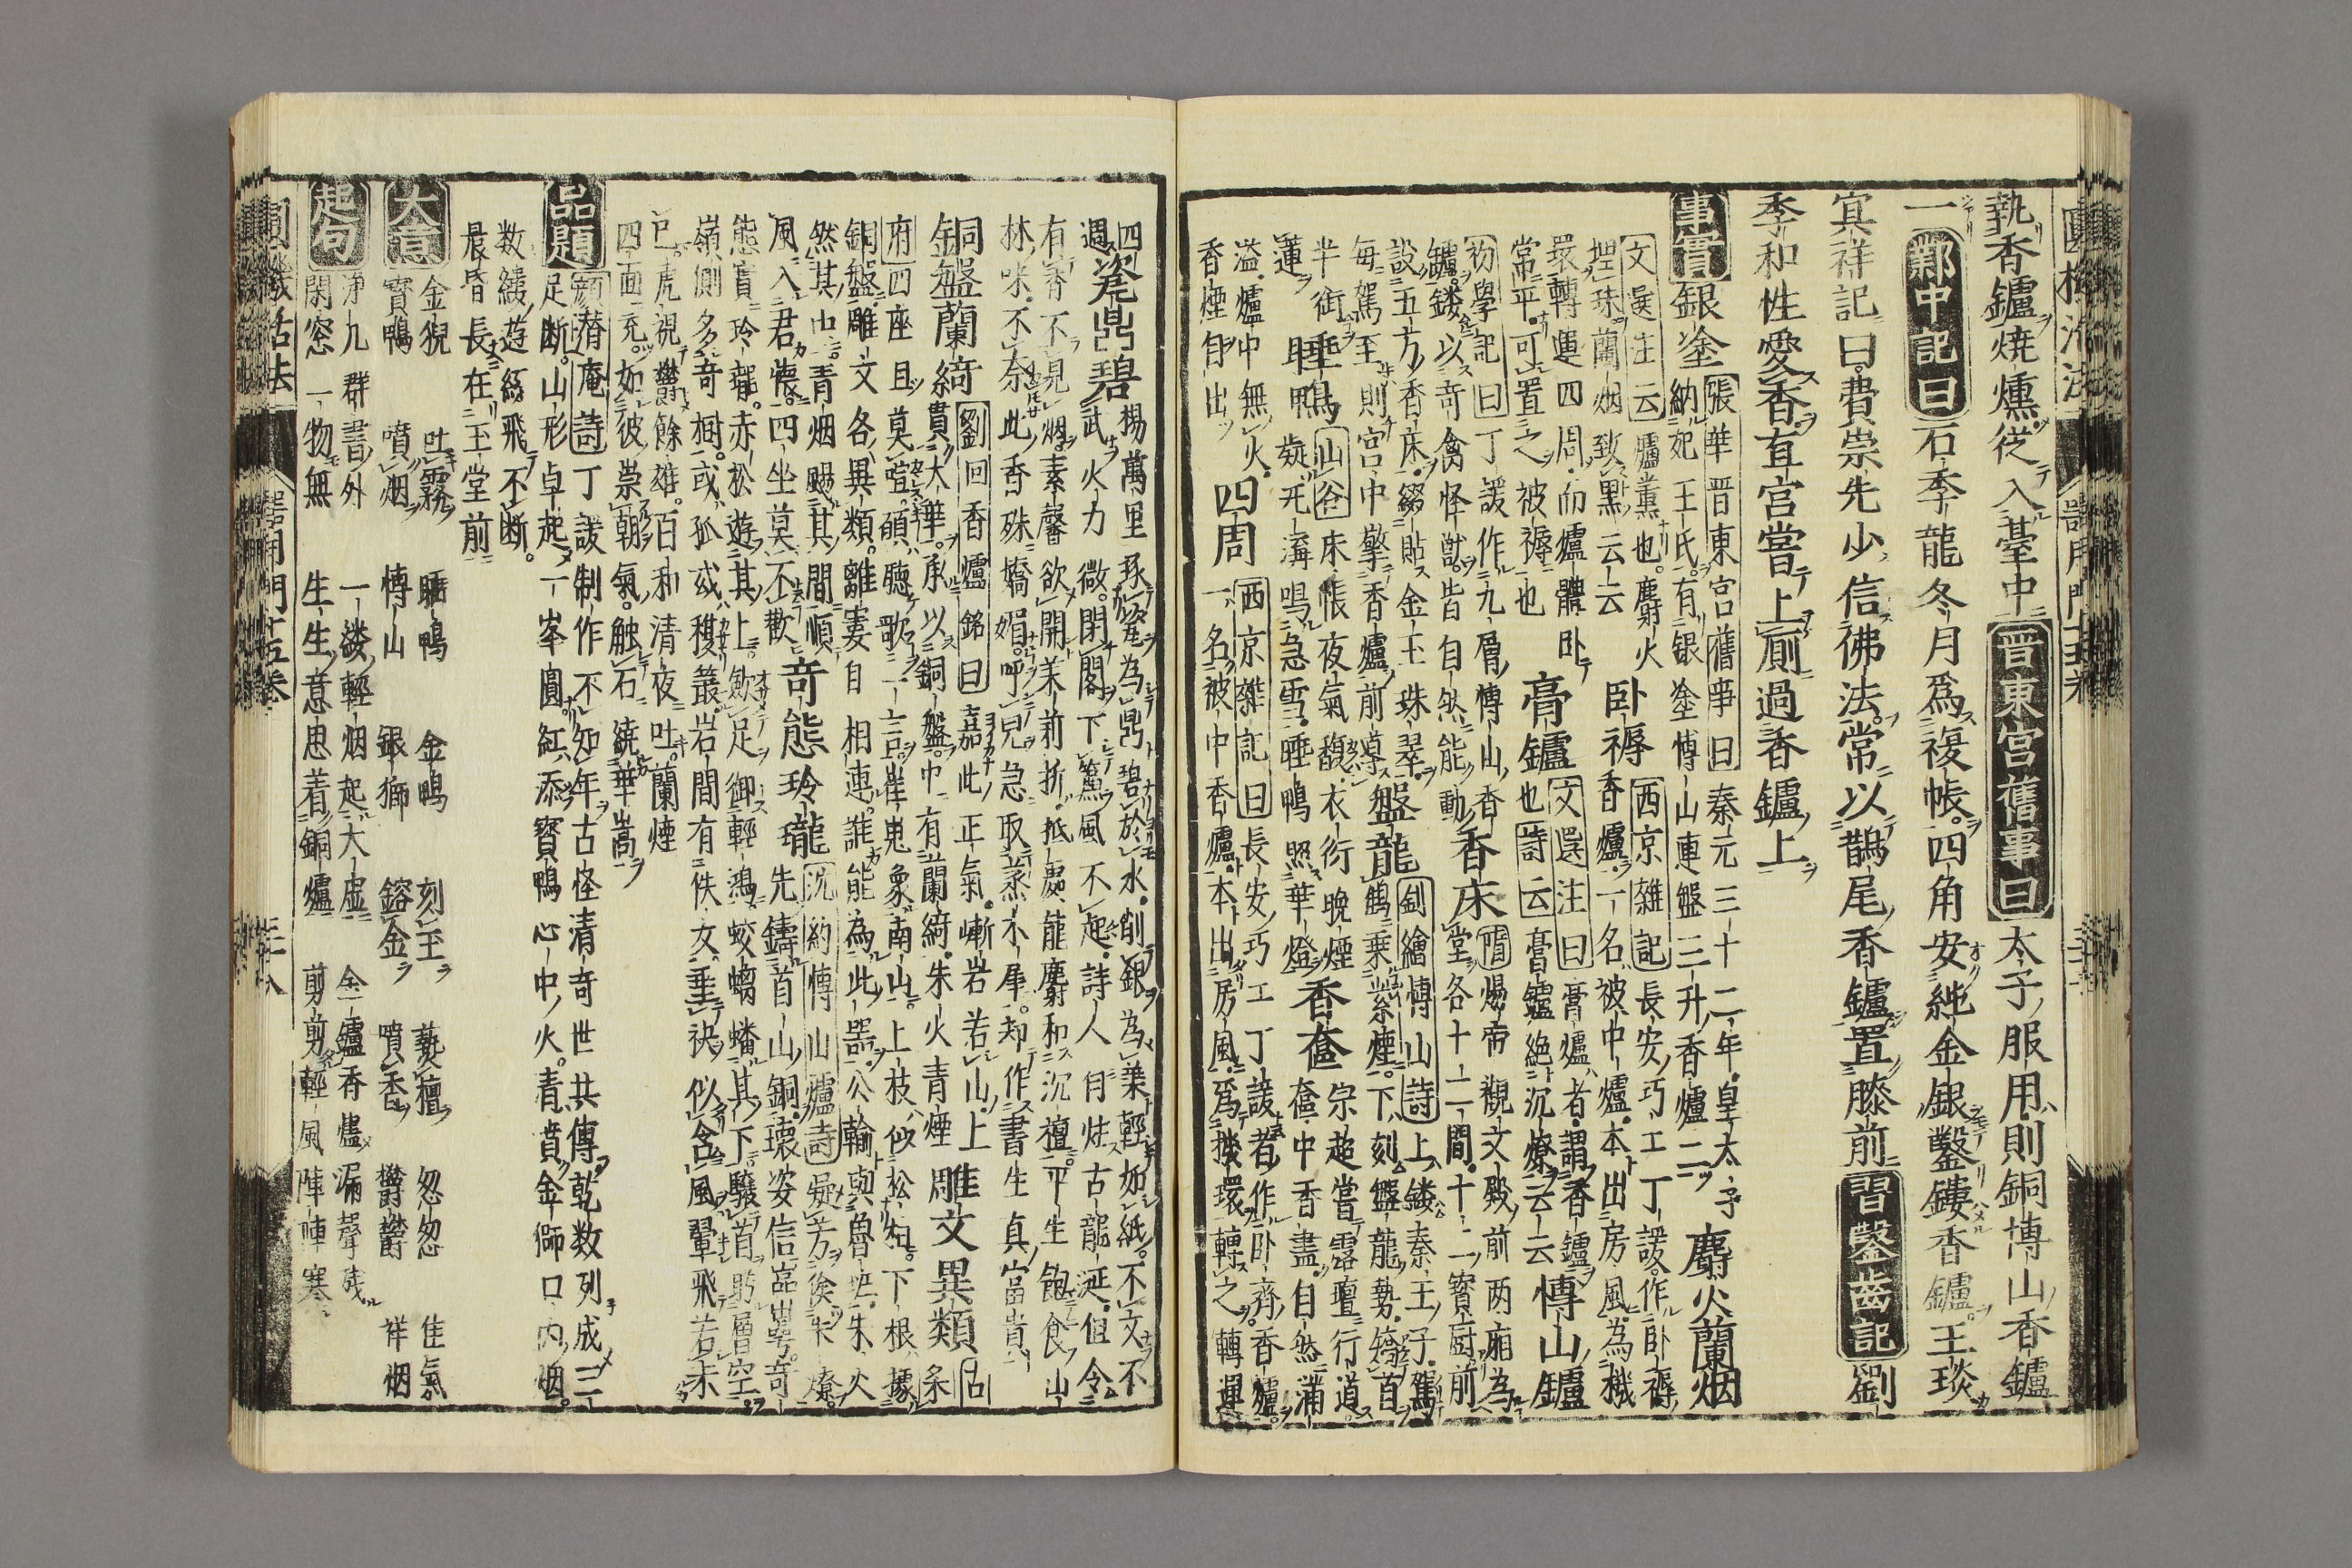 執香鑪燒燻從入臺中晋東宮舊事曰太子服用則銅博山香鑪
一鄴中記曰石季龍冬月爲複帳四角安純金銀鑿鏤香鑪王琰
冥祥記曰費崇先少信佛法常以鵲尾香鑪置膝前習鑿齒記劉
季和性愛香直宮嘗上厠過香鑪上
事實銀塗張華晋東宮舊事曰秦元三十二年皇太子
納妃王氏有銀塗博山連盤三升香爐二麝火蘭烟
文選注云爐薰也麝火
埋珠蘭烟致黒云云卧褥西京雜記長安巧工丁諼作卧褥
香爐一名被中爐本出房風為機
環轉運四周而爐體卧
常平可置之被褥也膏鑪文選注曰膏爐者謂香鑪
也詩云膏鑪絶沉燎云云博山鑪
初學記曰丁諼作九層博山香
鑪鏤以奇禽怪獣皆自然能動香床隋煬帝觀文殿前両廂為
堂各十二間十二寶厨前
設五方香床綴貼金玉珠翠
每駕至則宮中擎香爐前導盤龍劉繪博山詩上鏤秦王子駕
鶴乗紫煙下刻盤龍勢矯首
半銜蓮睡鴨山谷床帳夜氣馥衣衍晩煙
凝瓦溝鳴急雪睡鴨照華燈香奩宗超嘗露壇行道
奩中香盡自然滿
溢爐中無火
香煙自出四周西京雜記曰長安巧工丁諼者作卧齊香爐
一名被中香爐本出房風爲機環轉之轉運
四瓷鼎碧楊萬里琢瓷為鼎碧於水削銀為葉輕如紙不文不
週武火力微閉閣下簾風不起詩人自炷古龍涎但令
有香不見烟素馨欲開茉莉折抵處龍麝和沉檀平生飽食山
林味不奈此香殊嬌媚呼兒急取蒸木犀却作書生真富貴
銅盤蘭綺劉回香爐銘曰嘉此正氣嶃岩若山上
貫大華承以銅盤中有蘭綺朱火青煙雕文異類
府四座且莫諠願聽歌一言崔嵬象南山上枝似松栢下根據
銅盤雕文各異類離婁自相連誰能為此器公輸與魯班朱火
然其中青烟颺其間順
風入君懐四坐莫不歡奇態玲瓏沈約博山爐詩凝芳俟朱燎
先鑄首山銅瓌姿信嵓崿奇
態實玲瓏赤松遊其上斂足御輕鴻蛟螭蟠其下驤首盻層空
嶺側多奇樹或孤或複叢岩間有佚女垂袂似含風翬飛若未
已虎視欝餘雄百和清夜吐蘭煙
四面充如彼崇朝氣触石繞華嵩
品題顔潛庵詩丁諼制作不知年古怪清奇世共傳乾数列成三
足断山形卓起一峯圓紅添寳鴨心中火青噴金獅口内烟
数縷遊絲飛不断
晨昏長在玉堂前
大意金猊 吐霧 睡鴨 金鴨 刻玉 爇檀 怱怱 佳氣
寳鴨 噴烟 博山 銀獅 鎔金 噴香 欝欝 祥烟
起句淨几群書外 一縷輕烟起大虚 金鑪香燼漏聲残
閑窓一物無 生生意思着銅爐 剪剪輕風陣陣寒
圓機活法 器用門十五巻 三十八